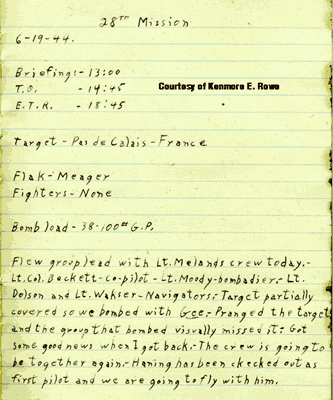 28TH Mission
6-19-44.
Briefing:- 13:00
T.O. - 14:45
Courtesy of Kenmore E. Rowe
E.T.R. - 18:45
Target - Pas de Calais - France
Flak - Meager
Fighters - None
Bomb load - 38-100## G.P.
Flew group lead with Lt. Melands crew today.-
Lt. Col. Beckett-co-pilot - Lt. Moody-bombadier. - Lt.
Dolson and Lt. Wakser - Navigators. Target partially
covered so we bombed with Gee. - Pranged the target
and the group that bombed visually missed it. Got
some good news when I got back. - The crew is going to
be together again. - Haning has been ckecked out as
first pilot and we are going to fly with him.